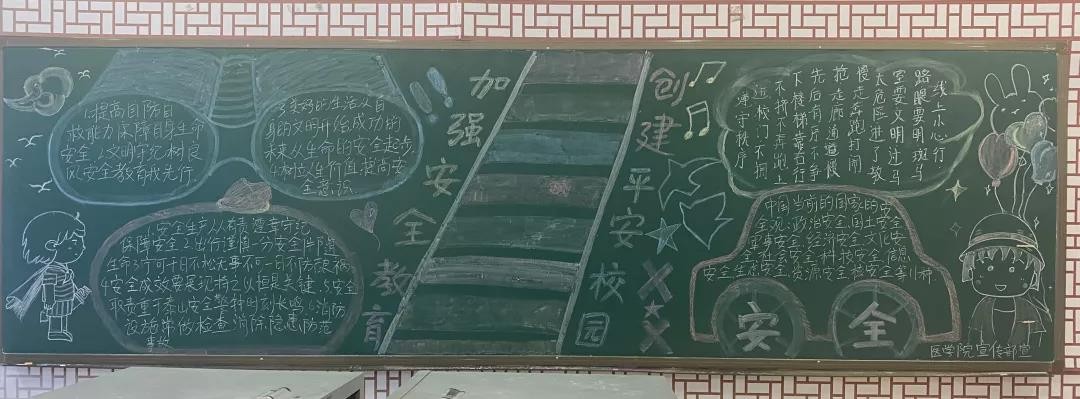 加强安全教育
创建平安校园
1.提高国防自
救能力 保障自身生命
安全 2.文明守纪 树良
风 安全教育我先行
3.美好的生活从自
身的文明开始 成功的
未来从生命的安全起步
4.树立人生价值 提高安
全意识
1.安全生产 人有责 遵章守纪
保障安全 2.出行谨慎一分 安全
生命 3.宁可千日不松 无事不可一日不防 酿祸
4.安全成效 担是关键 5.安全
职责重于泰山 安全警钟时刻长鸣 6.消防
设施常做检查 消除隐患 防范
事故
线上小心行
路眼要明 斑马
室要文明 过马
太危险 进了教
慢走 奔跑打闹
抢 走廊通道慢
先后有序不争
下楼梯靠右行
不拥不挤
近校门不拥
净守秩序
中国当前的国家的安
全观 政治安全 国土安全
军事安全 经济安全 文化安
全 社会安全 科技安全 信息
安全 生态安全 资源安全 核安全等11种
安全
医学院宣传部宣